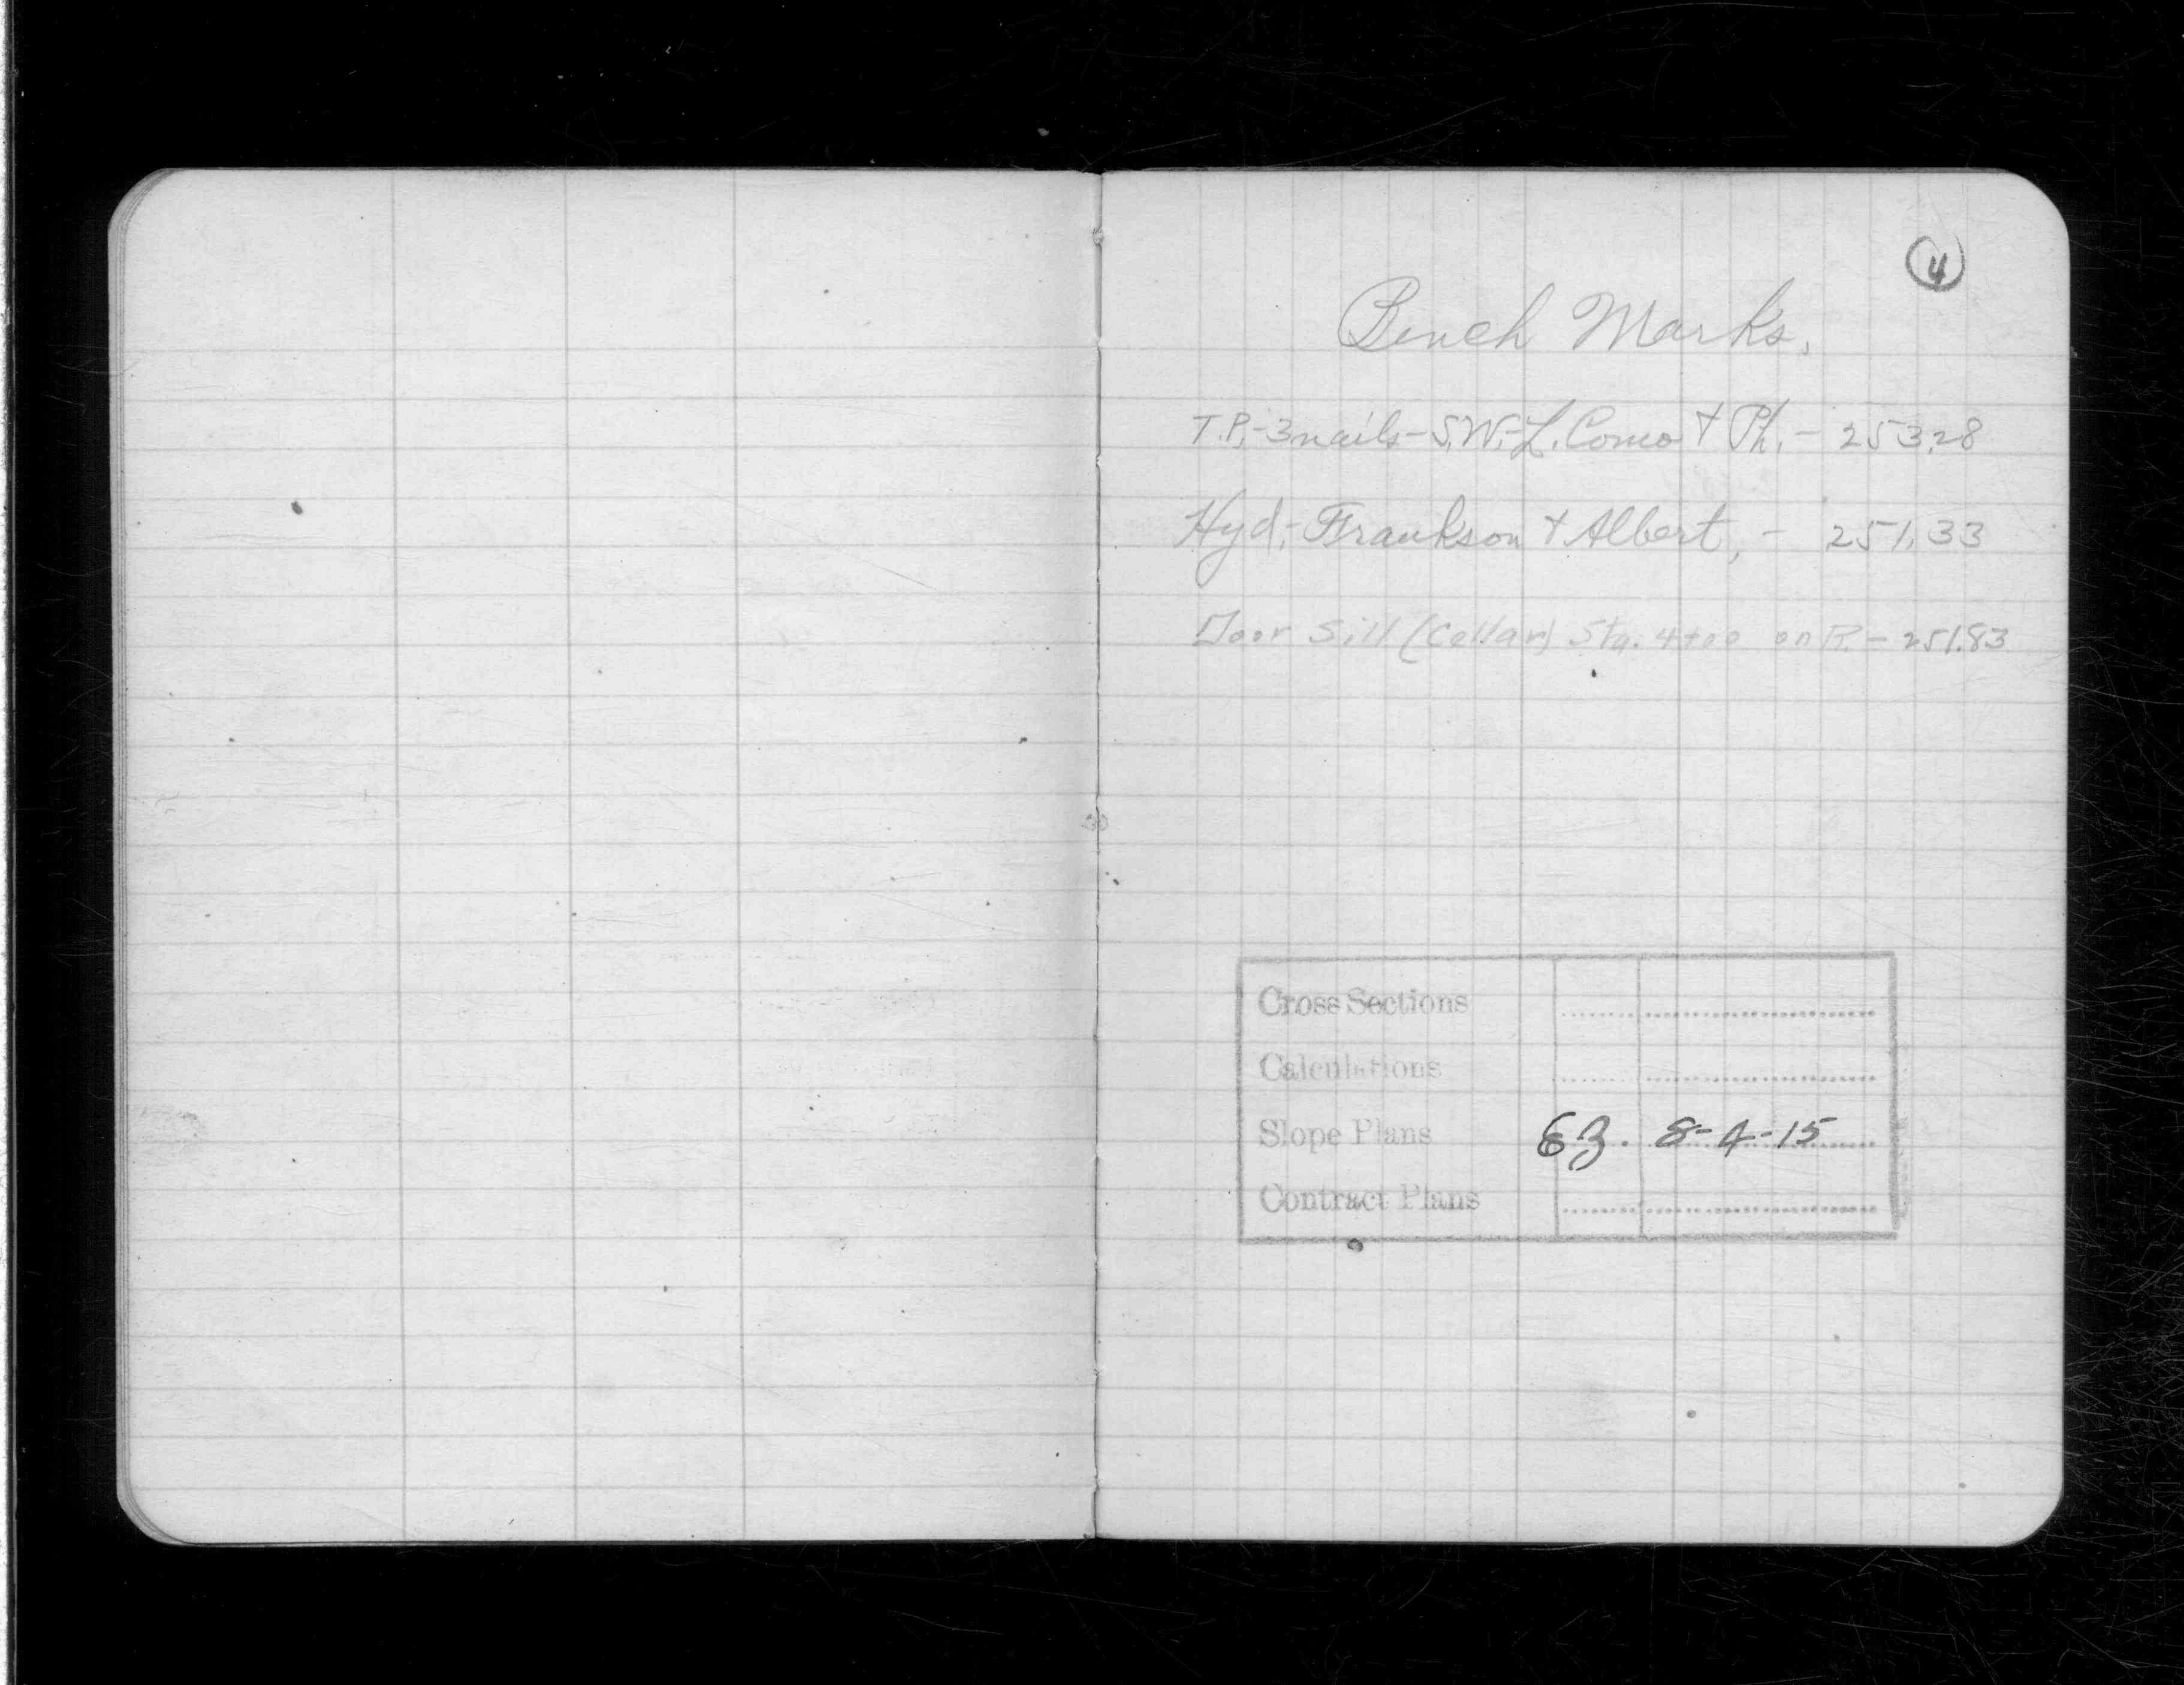 4
Bench Marks.
T.P.-3nails-S.W.-L. Como & Ph. - 253.28
Hyd.- Frankson & Albert, - 251.33
Door Sill (Cellar) Sta. 4+00 on R. - 251.83
Cross Sections
Calculations
Slope Plans 8-4-15
Contract Plans